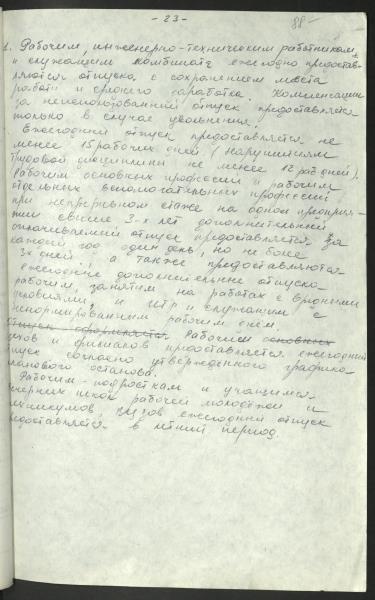 - 23 -
88
1. Рабочим, инженерно-техническим работникам
и служащим комбината ежегодно предостав-
ляются отпуска с сохранением места
работы и среднего заработка. Компенсация
за неиспользованный отпуск предоставляется
только в случае увольнения.
Ежегодный отпуск предоставляется не
менее 15 рабочих дней (нарушителям
трудовой дисциплины не менее 12 раб дней).
Рабочим основных профессий и рабочим
отдельных вспомогательных профессий
при непрерывном стаже на одном предприя-
тии свыше 3-х лет дополнительный
оплачиваемый отпуск предоставляется за
каждый год один день, но не более
3х дней, а также предоставляются
ежегодные дополнительные отпуска
рабочим, занятым на работах с вредными
условиями, и ИТР и служащим с
ненормированным рабочим днем.
Рабочим основных
цехов и филиалов предоставляется ежегодный
отпуск согласно утвержденного графика
планового останова.
Рабочим-подросткам и учащимся
вечерних школ рабочей молодежи и
техникумов, ВУЗов ежегодный отпуск
предоставляется в летний период.